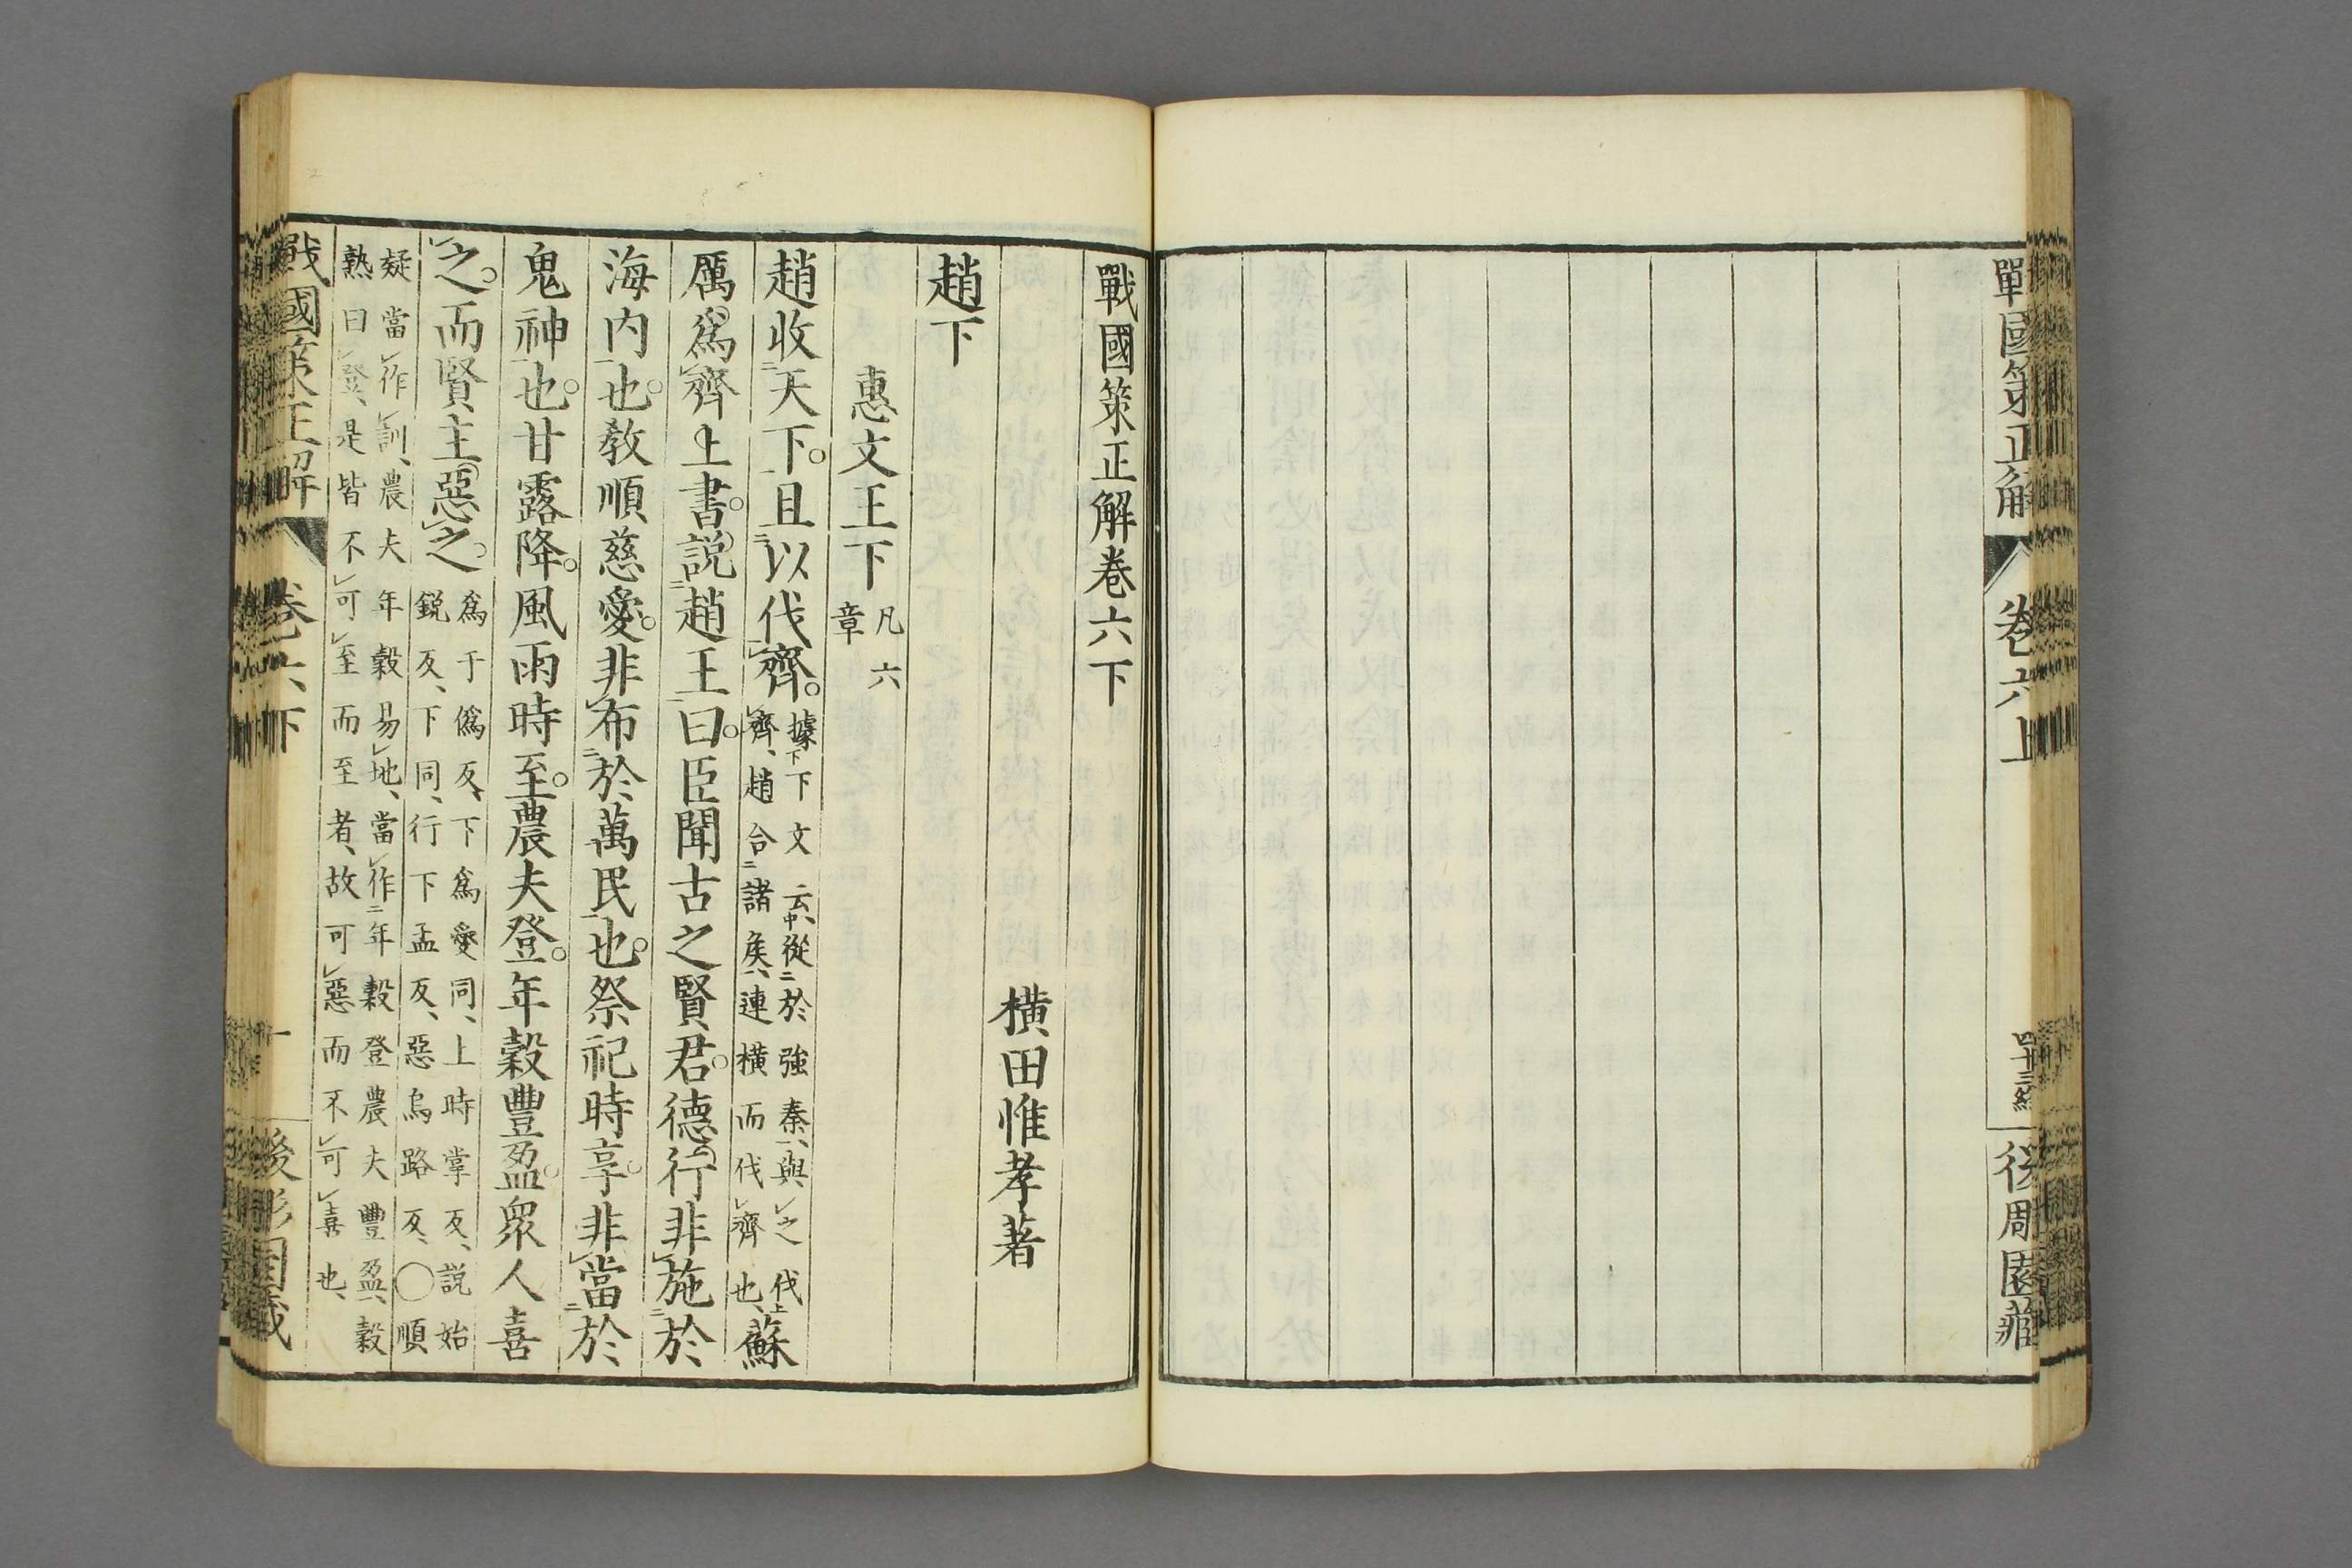 戰國策正解
卷六上
四十三終
後周園藏
戰國策正解卷六下
橫田惟孝著
趙下
惠文王下凡六章
趙收天下。且以伐齊。據下文云、從於強秦、與之伐齊、趙合諸侯、連橫而伐齊也、蘇
厲爲齊上書。說趙王曰。臣聞古之賢君。德行非施於
海内也。教順慈愛。非布於萬民也。祭祀時享。非當於
鬼神也。甘露降。風雨時至。農夫登。年穀豐盈。衆人喜
之。而賢主惡之。爲于僞反、下爲愛同、上時掌反、說始銳反、下同、行下孟反、惡烏路反、○順
疑當作訓、農夫年穀易地、當作年穀登農夫豐盈、穀
熟曰登、是皆不可至而至者、故可惡而不可喜也、
戰國策正解
卷六下
一
後周園藏